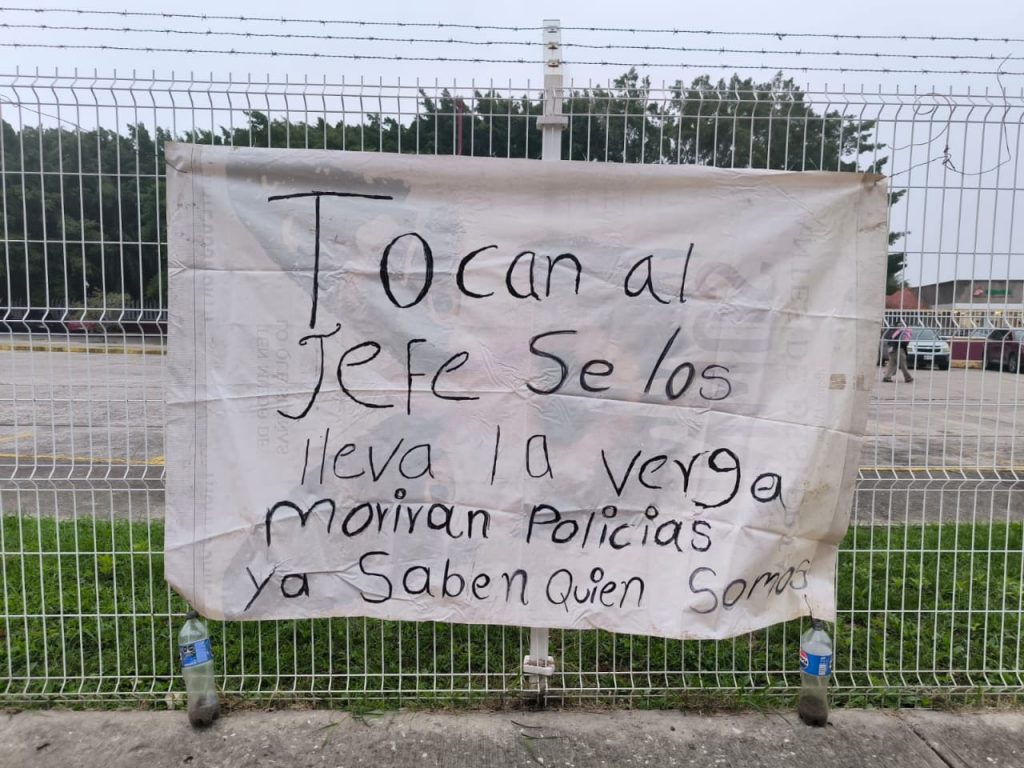 Tocan al
Jefe Se los
lleva la verga
moriran Policias
ya Saben Quien Somos